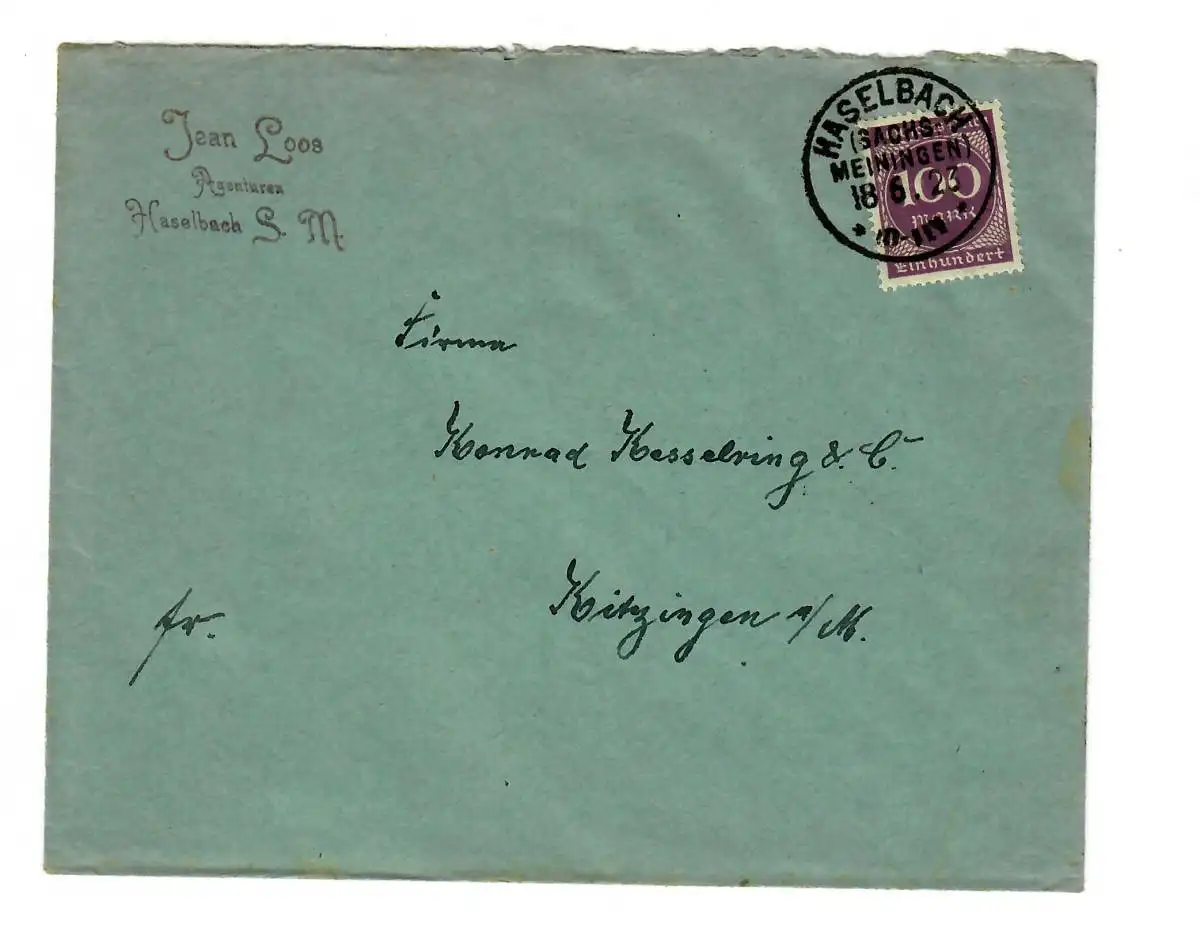 Jean Loos
Agenturen
Haselbach S. M.
HASELBACH
(SACHS-
MEININGEN)
18 6. 23
100
MARK
Einhundert
Firma
Konrad Kesselring & C.
Kitzingen a/M.
fr.